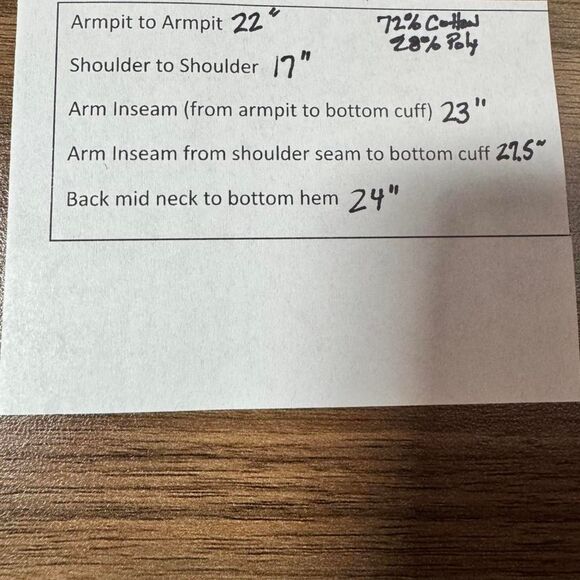 Armpit to Armpit 22"
72% Cotton
28% Poly
Shoulder to Shoulder 17"
Arm Inseam (from armpit to bottom cuff) 23"
Arm Inseam from shoulder seam to bottom cuff 27.5"
Back mid neck to bottom hem 24"